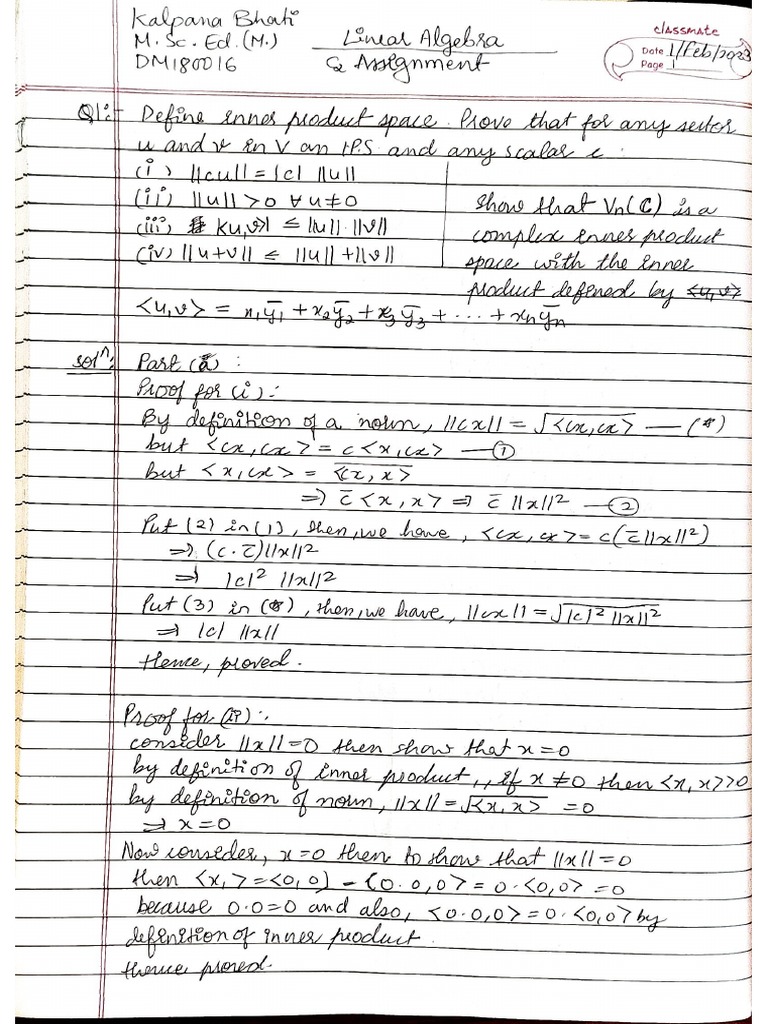 Kalpana Bhati
M. Sc. Ed. (M.)
DM180016
Linear Algebra
Assignment
classmate
Date 1/Feb/2023
Page 1
Q1:- Define inner product space. Prove that for any vector
u and v in V an I.P.S and any scalar c :
(i) ||cu|| = |c| ||u||
(ii) ||u|| > 0 ∀ u ≠ 0
(iii) |<u,v>| ≤ ||u||·||v||
(iv) ||u+v|| ≤ ||u|| + ||v||
Show that Vn(C) is a
complex inner product
space with the inner
product defined by <u,v>
<u,v> = x₁y̅₁ + x₂y̅₂ + x₃y̅₃ + ... + xₙy̅ₙ
solⁿ: Part (a) :
Proof for (i) :
By definition of a norm, ||cx|| = √<cx,cx> — (*)
but <cx, cx> = c<x, cx> — ①
But <x, cx> = \overline{<cx, x>}
⇒ c̅ <x, x> ⇒ c̅ ||x||² — ②
Put (2) in (1), then, we have, <cx, cx> = c(c̅ ||x||²)
⇒ (c·c̅)||x||²
⇒ |c|² ||x||²
Put (3) in (*), then, we have, ||cx|| = √|c|² ||x||²
⇒ |c| ||x||
Hence, proved.
Proof for (ii) :
consider ||x|| = 0 then show that x = 0
by definition of inner product,, if x ≠ 0 then <x, x> > 0
by definition of norm, ||x|| = √<x, x> = 0
⇒ x = 0
Now consider, x = 0 then to show that ||x|| = 0
then <x, > = <0, 0) - (0·0, 0> = 0·<0,0> = 0
because 0·0 = 0 and also, <0·0,0> = 0·<0,0> by
definition of inner product.
Hence proved.